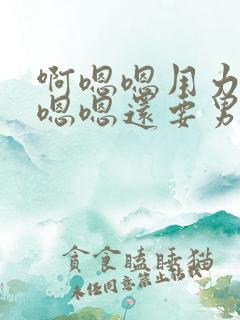 啊嗯嗯用力
嗯嗯還要男
貪食瞌睡猫
未经同意禁止转载